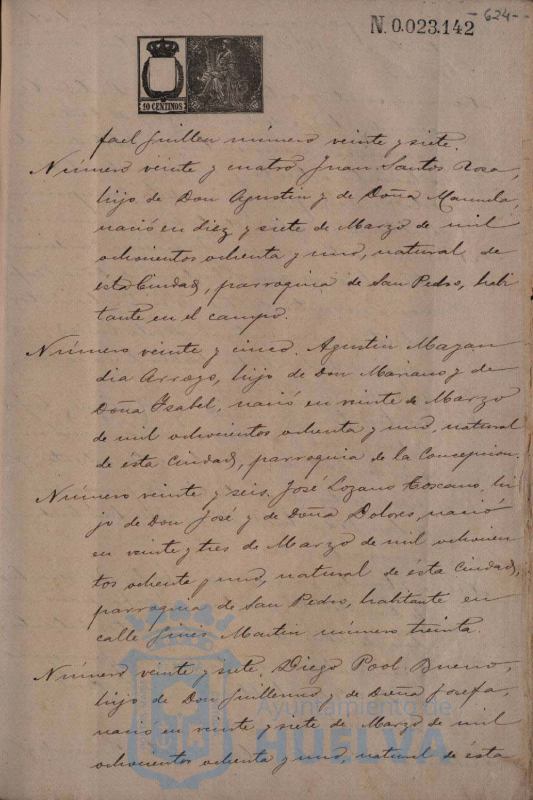 -624-
N. 0.023.142
10 CENTIMOS
fael Guillen número veinte y siete.
Número veinte y cuatro. Juan Santos Rosa,
hijo de Don Agustin y de Doña Manuela,
nació en diez y siete de Marzo de mil
ochocientos ochenta y uno, natural de
esta Ciudad, parroquia de San Pedro, habi
tante en el campo.
Número veinte y cinco. Agustin Mazan
dia Arroyo, hijo de Don Mariano y de
Doña Isabel, nació en veinte de Marzo
de mil ochocientos ochenta y uno, natural
de esta Ciudad, parroquia de la Concepcion.
Número veinte y seis. José Lozano Toscano, hi
jo de Don José y de Doña Dolores, nació
en veinte y tres de Marzo de mil ochocien
tos ochenta y uno, natural de esta Ciudad,
parroquia de San Pedro, habitante en
calle Ginés Martin número treinta.
Número veinte y siete. Diego Pool Bueno,
hijo de Don Guillermo y de Doña Josefa,
nació en veinte y siete de Marzo de mil
ochocientos ochenta y uno, natural de esta
Ayuntamiento de
HUELVA